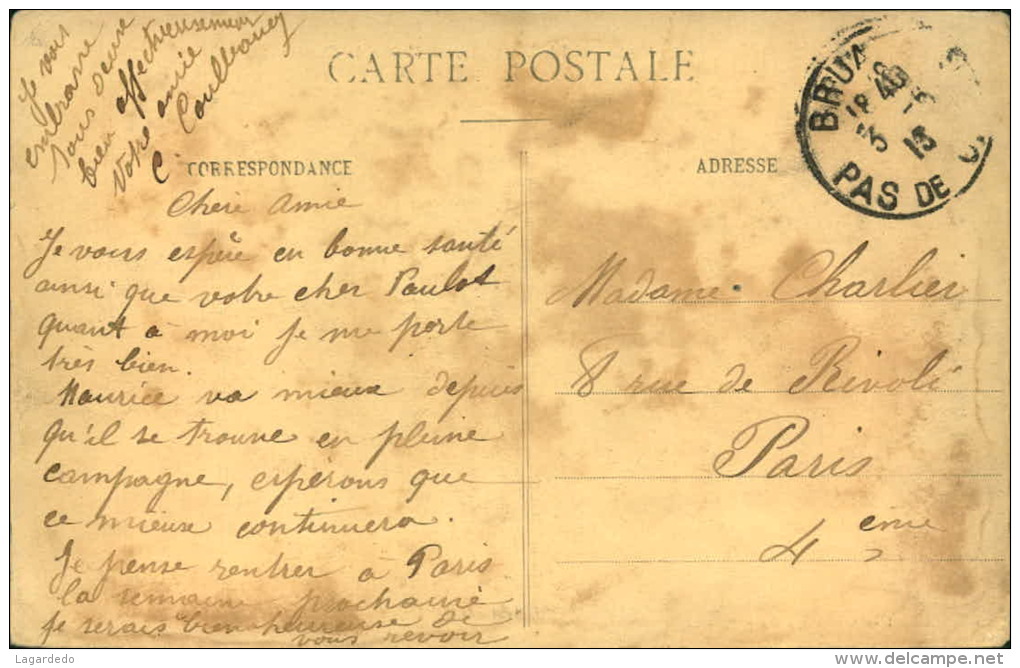 CARTE POSTALE
CORRESPONDANCE
ADRESSE
BRUA
18 40
5 13
PAS DE C
Chère Amie
Je vous espère en bonne santé
ainsi que votre cher Paulot
quant à moi je me porte
très bien.
Maurice va mieux depuis
qu'il se trouve en pleine
campagne, espérons que
ce mieux continuera.
Je pense rentrer à Paris
la semaine prochaine
je serais bien heureuse de
vous revoir
Je vous
embrasse
tous deux
bien affectueusement
Votre amie
C
Madame Charlier
8 rue de Rivoli
Paris
4 eme
Lagardedo
www.delcampe.net